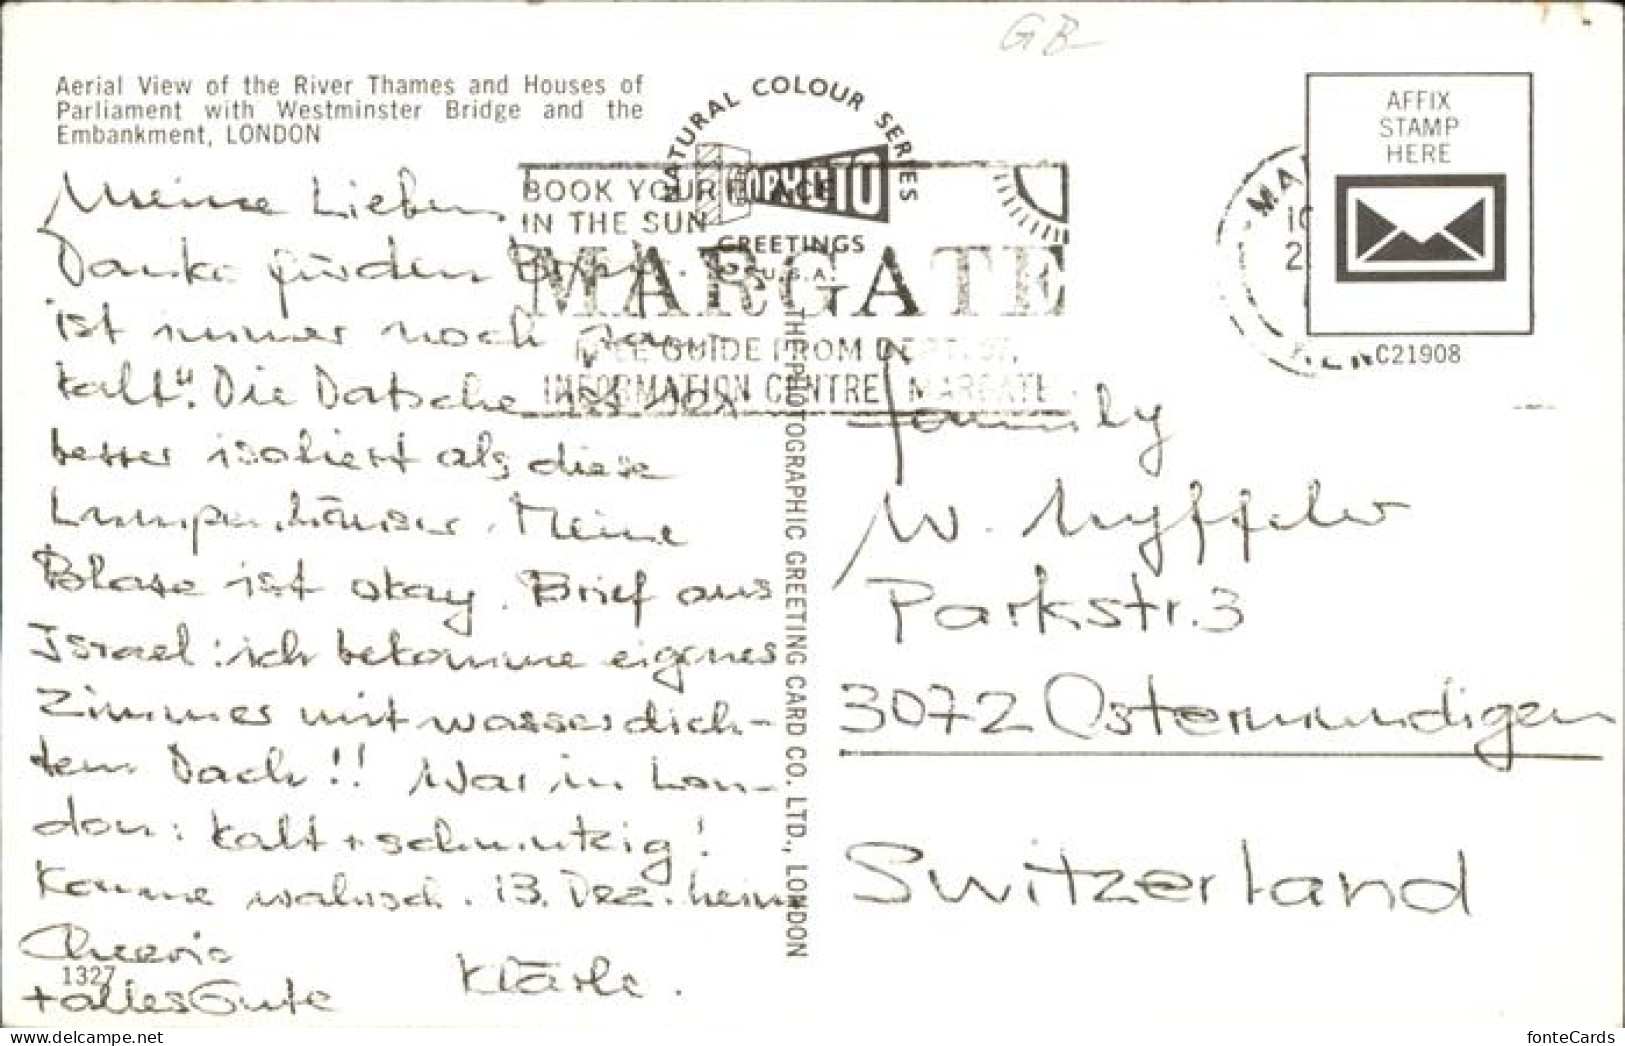 GB
Aerial View of the River Thames and Houses of
Parliament with Westminster Bridge and the
Embankment, LONDON
NATURAL COLOUR SERIES
PHOTO
GREETINGS
U.S.A.
BOOK YOUR PLACE
IN THE SUN
MARGATE
FREE GUIDE FROM DEPT.
INFORMATION CENTRE MARGATE
AFFIX
STAMP
HERE
C21908
Meine Lieben
Danke für den Brief. Es
ist immer noch
kalt". Die Datsche ist
besser isoliert als diese
Lumpenhäuser. Meine
Blase ist okay. Brief aus
Israel: ich bekomme eigenes
Zimmer mit wasserdich-
tem Dach!! War in Lon-
don: kalt + schmutzig!
Komme wahrsch. 13. Dez. heim
Cheerio
1327
+ alles Gute Klärli.
THE PHOTOGRAPHIC GREETING CARD CO. LTD., LONDON
Family
W. Nyffeler
Parkstr. 3
3072 Ostermundigen
Switzerland
fonteCards
www.delcampe.net